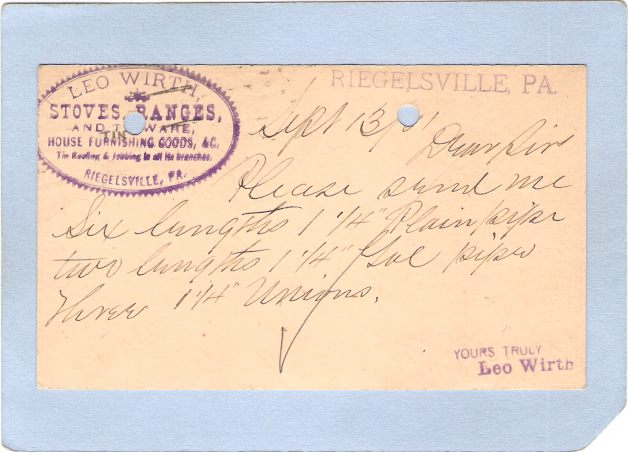 LEO WIRTH,
STOVES, RANGES,
AND TINWARE,
HOUSE FURNISHING GOODS, &C,
Tin Roofing & Jobbing in all its branches.
RIEGELSVILLE, PA.
RIEGELSVILLE, PA.
Sept 13/
Dear Sir
Please send me
Six lengths 1 1/4" Plain pipe
two lengths 1 1/4" Gal pipe
three 1 1/4" Unions.
YOURS TRULY
Leo Wirth